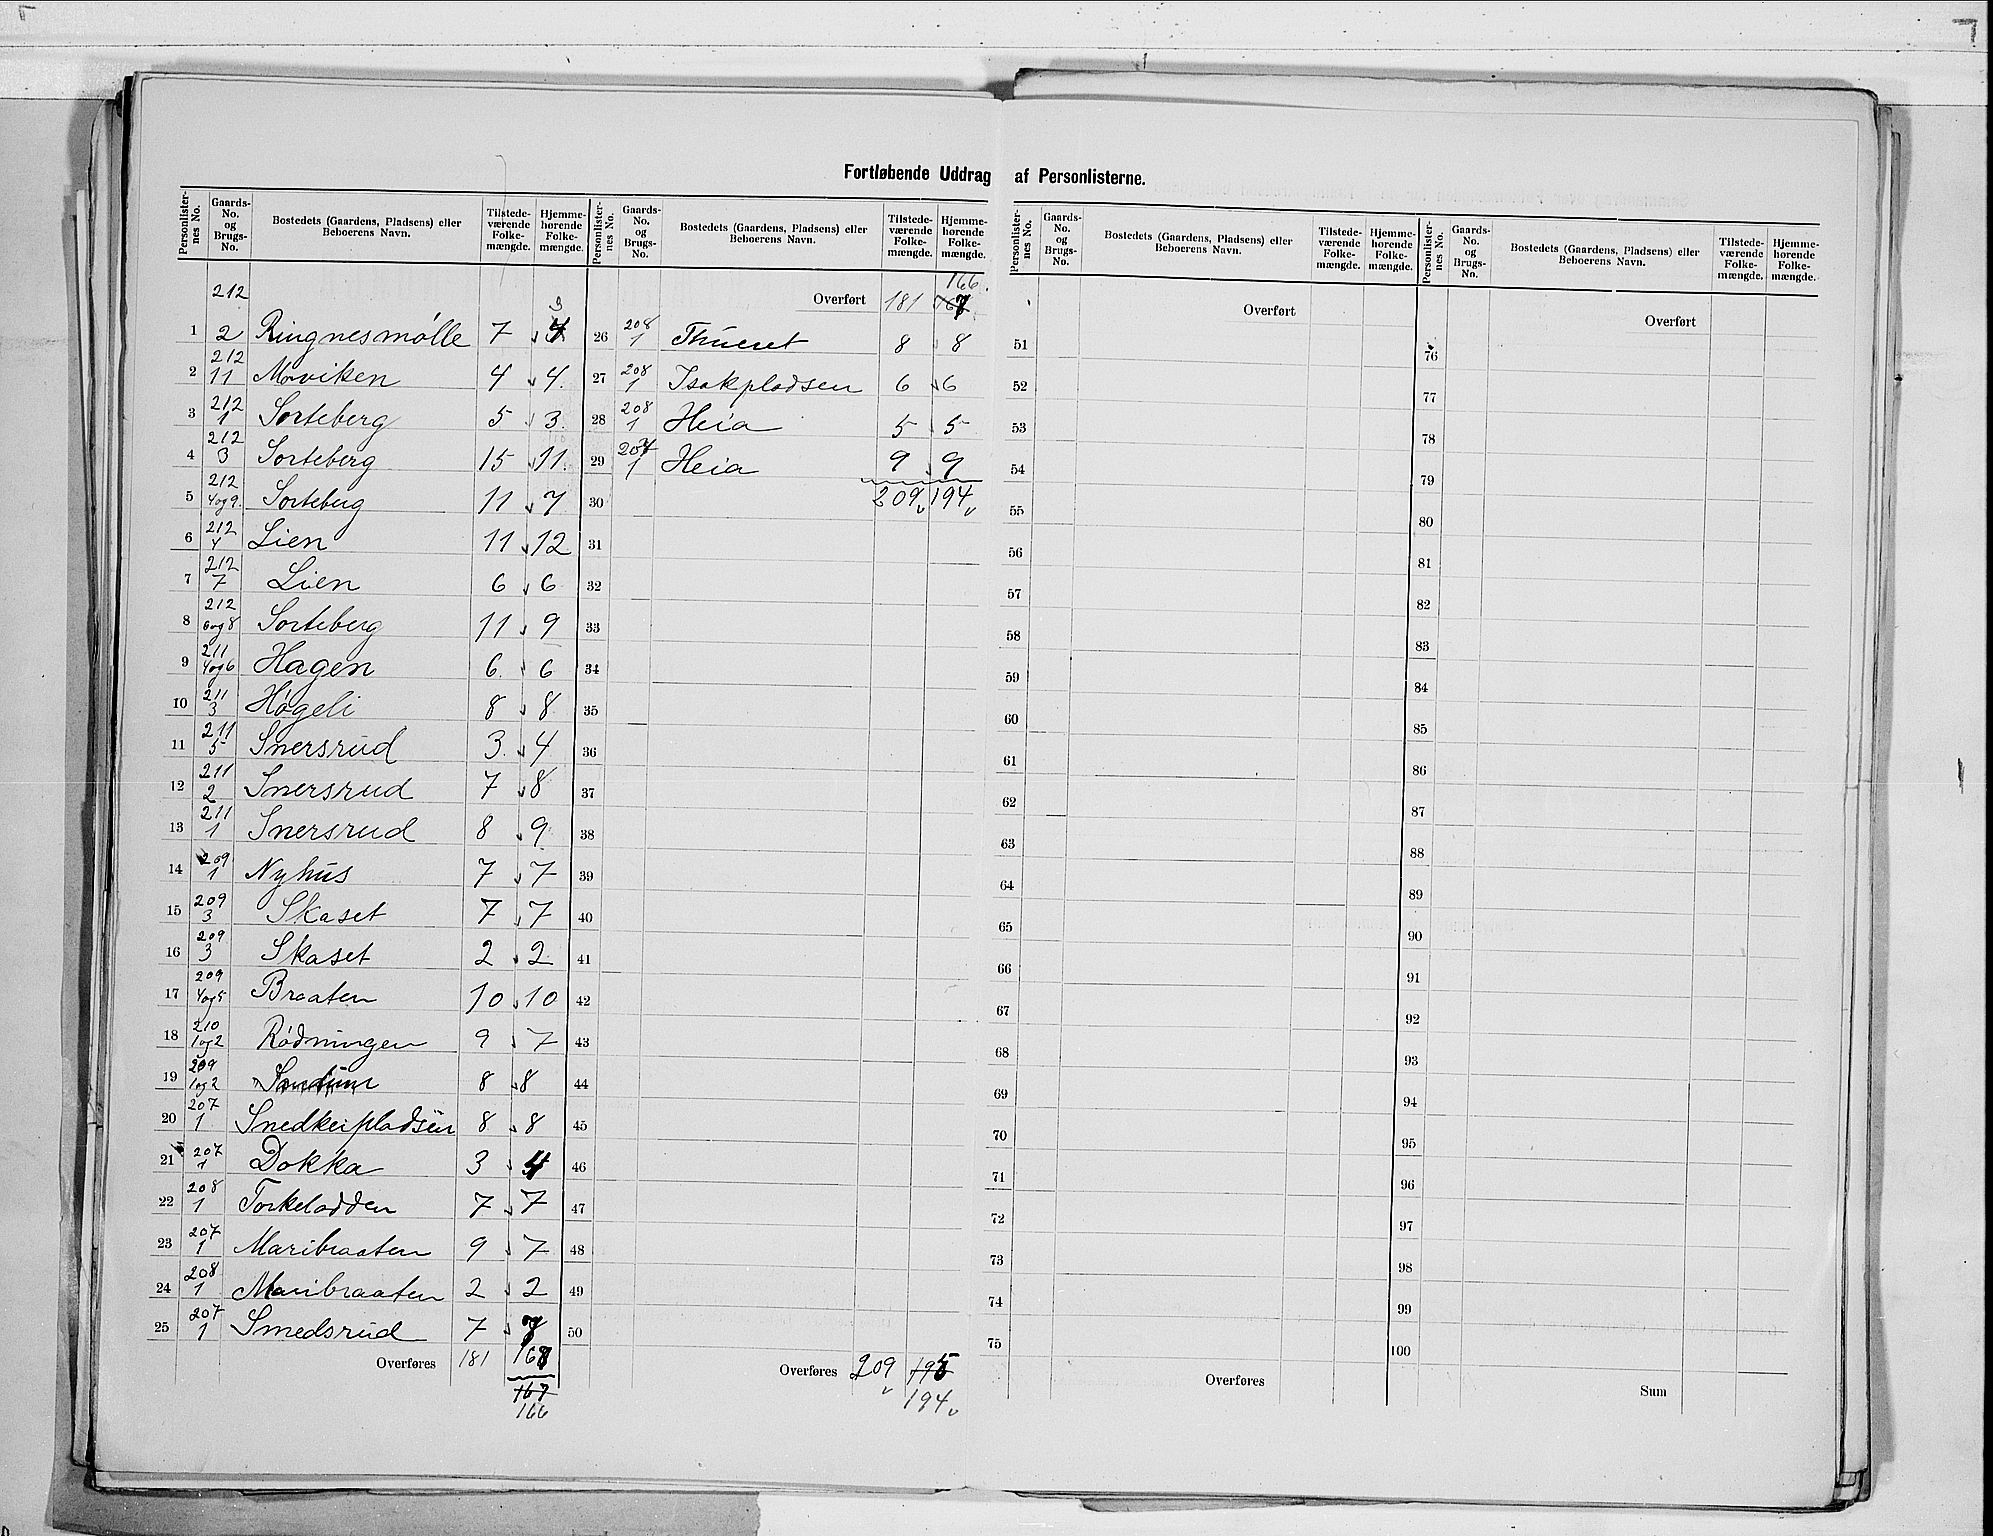 Fortløbende Uddrag af Personlisterne.
Personlister-nes No. Gaards-No. og Brugs-No. Bostedets (Gaardens, Pladsens) eller Beboerens Navn. Tilstede-værende Folke-mængde. Hjemme-hørende Folke-mængde.
1 212 2 Ringnesmølle 7 3
2 212 11 Moviken 4 4
3 212 1 Sorteberg 5 3
4 212 3 Sorteberg 15 11
5 212 4og9 Sorteberg 11 7
6 212 4 Lien 11 12
7 212 7 Lien 6 6
8 212 6og8 Sorteberg 11 9
9 211 4og6 Hagen 6 6
10 211 3 Høgeli 8 8
11 211 5 Snersrud 3 4
12 211 2 Snersrud 7 8
13 211 1 Snersrud 8 9
14 209 1 Nyhus 7 7
15 209 3 Skaset 7 7
16 209 3 Skaset 2 2
17 209 4og5 Braaten 10 10
18 210 1og2 Rødningen 9 7
19 209 1og2 8 8
20 207 1 Snedkerpladsen 8 8
21 207 1 Dokka 3 4
22 208 1 Torkeladden 7 7
23 207 1 Maribraaten 9 7
24 208 1 Maribraaten 2 2
25 207 1 Smedsrud 7 7
Overføres 181 167
167
166
Personlister-nes No. Gaards-No. og Brugs-No. Bostedets (Gaardens, Pladsens) eller Beboerens Navn. Tilstede-værende Folke-mængde. Hjemme-hørende Folke-mængde.
166
Overført 181 167
26 208 1 Thueret 8 8
27 208 1 Isakpladsen 6 6
28 208 1 Heia 5 5
29 207 1 Heia 9 9
30 209 194
31
32
33
34
35
36
37
38
39
40
41
42
43
44
45
46
47
48
49
50
Overføres 209 195
194
Personlister-nes No. Gaards-No. og Brugs-No. Bostedets (Gaardens, Pladsens) eller Beboerens Navn. Tilstede-værende Folke-mængde. Hjemme-hørende Folke-mængde.
Overført
51
52
53
54
55
56
57
58
59
60
61
62
63
64
65
66
67
68
69
70
71
72
73
74
75
Overføres
Personlister-nes No. Gaards-No. og Brugs-No. Bostedets (Gaardens, Pladsens) eller Beboerens Navn. Tilstede-værende Folke-mængde. Hjemme-hørende Folke-mængde.
Overført
76
77
78
79
80
81
82
83
84
85
86
87
88
89
90
91
92
93
94
95
96
97
98
99
100
Sum